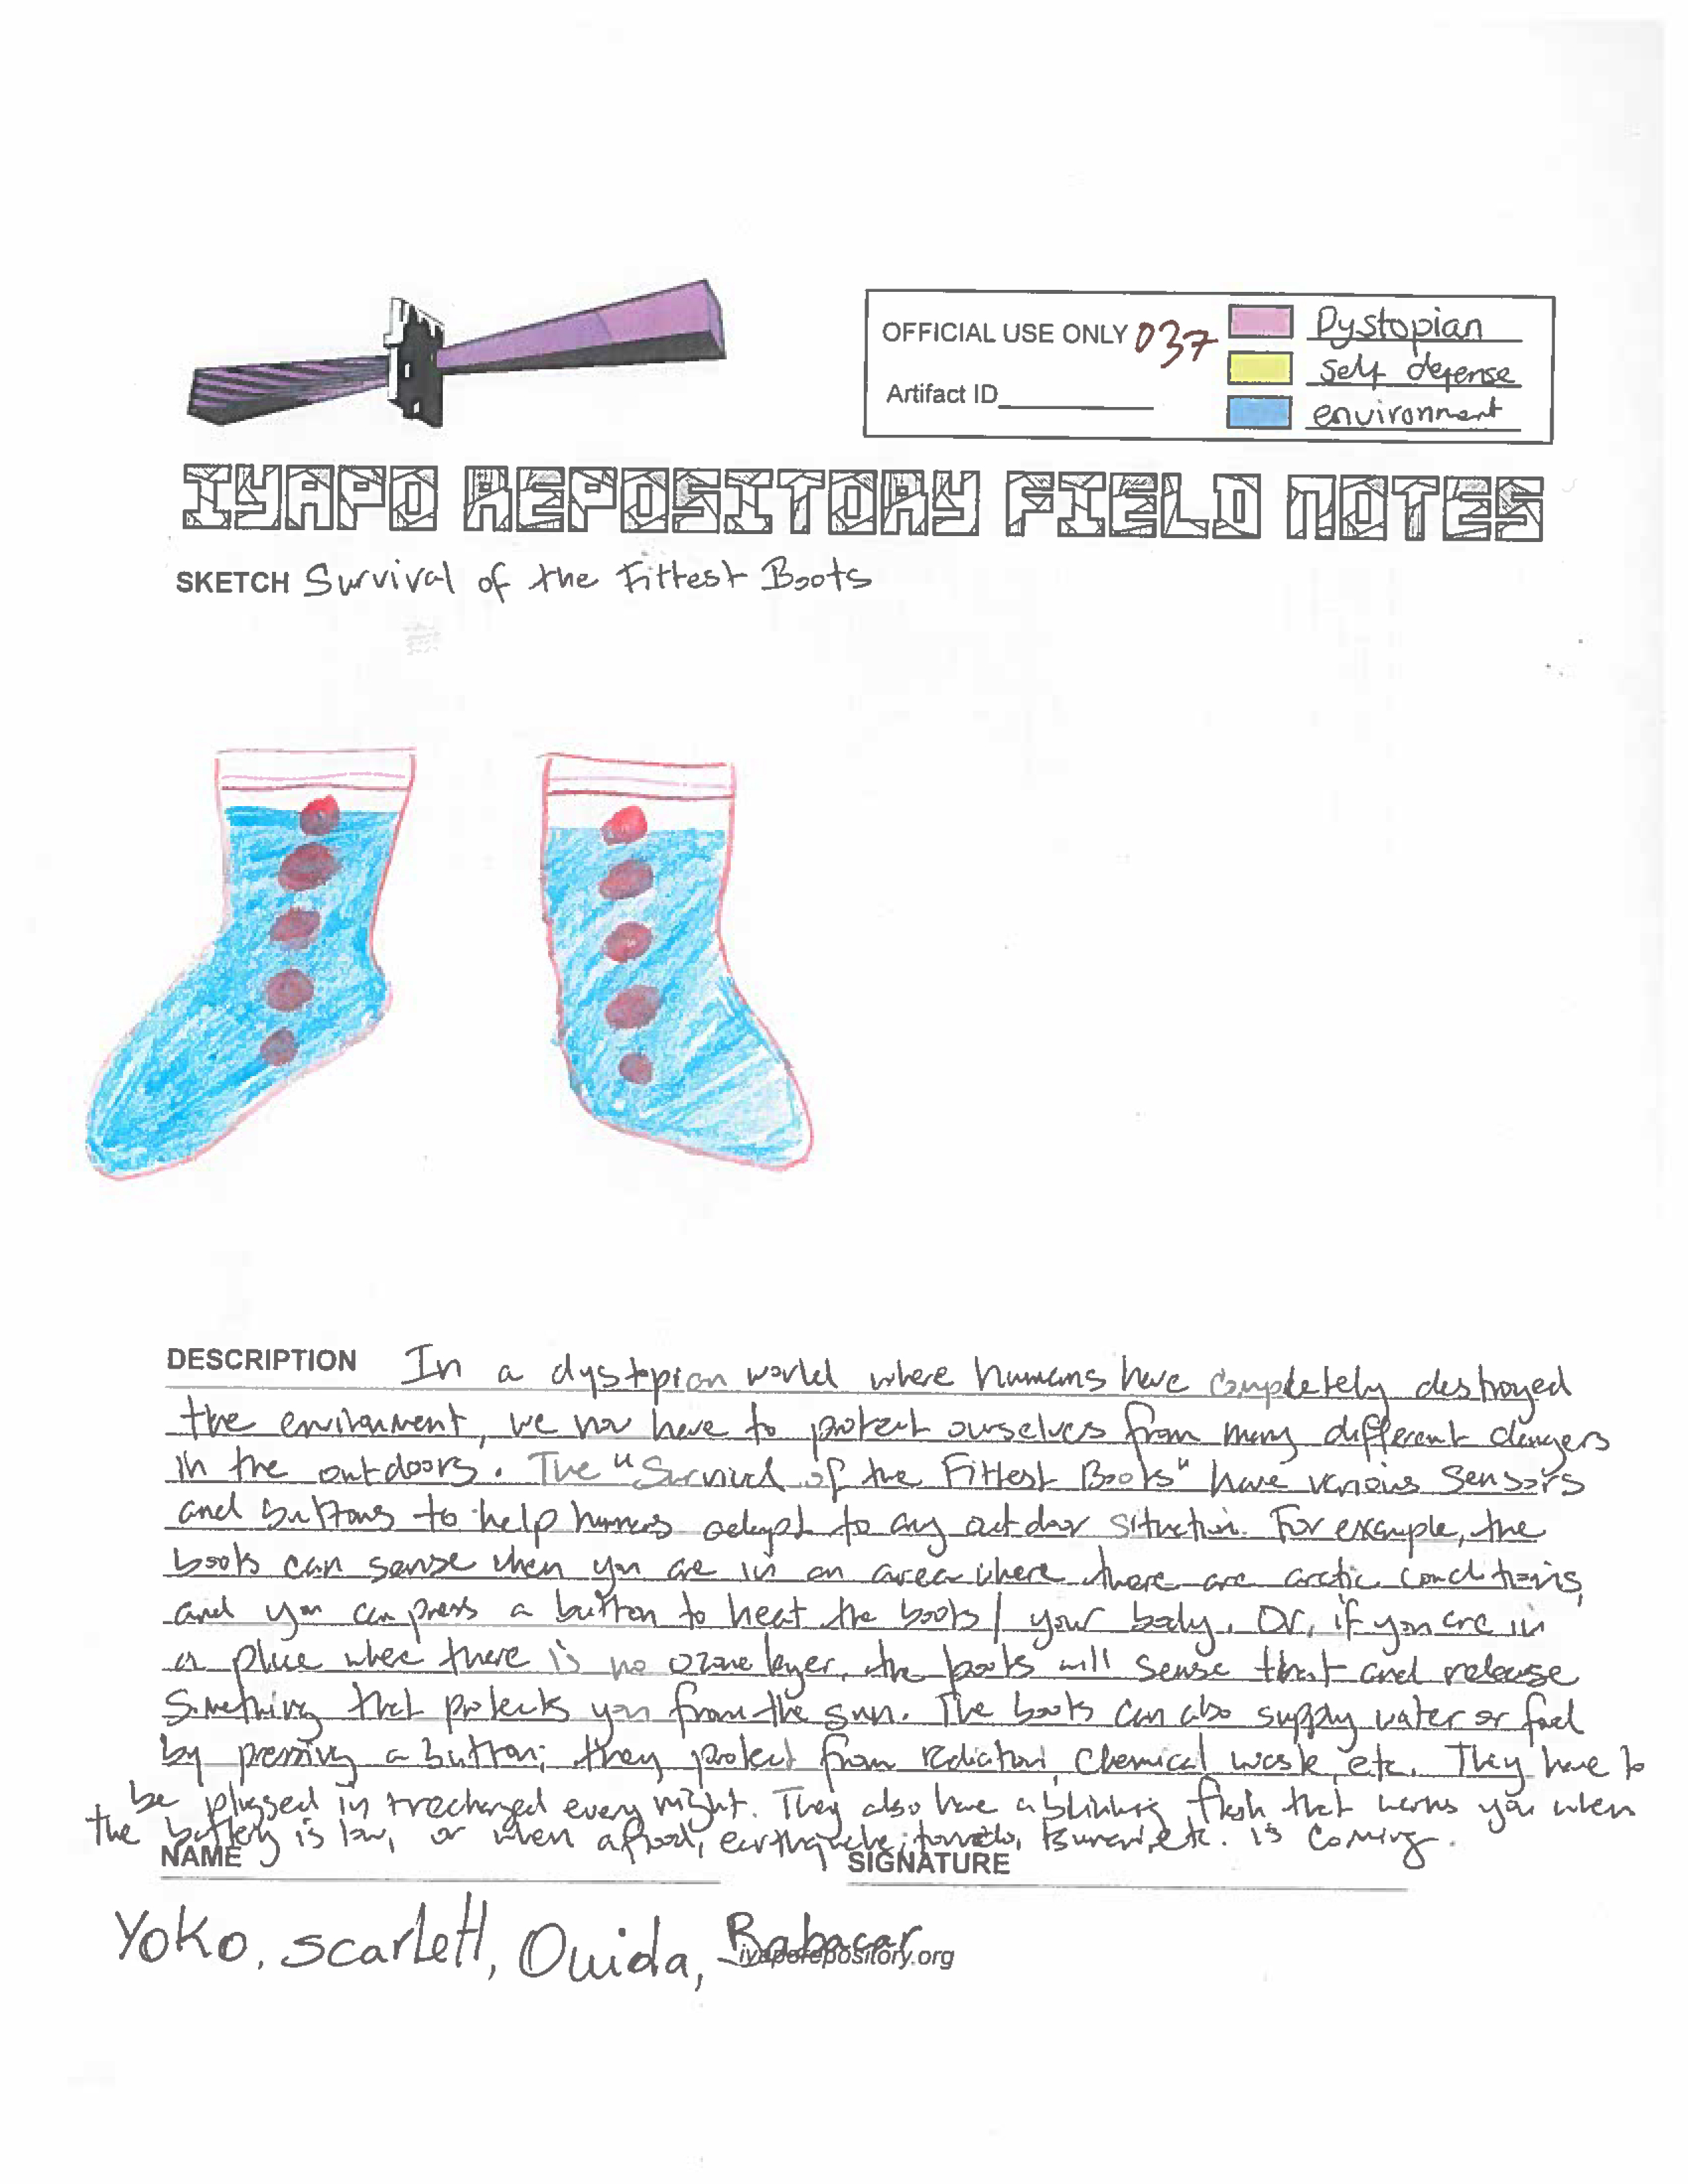 OFFICIAL USE ONLY 037
Artifact ID
Dystopian
self defense
environment
IYAPO REPOSITORY FIELD NOTES
SKETCH Survival of the Fittest Boots
DESCRIPTION In a dystopian world where humans have completely destroyed
the environment, we now have to protect ourselves from many different dangers
in the outdoors. The "Survival of the Fittest Boots" have various sensors
and buttons to help humans adapt to any outdoor situation. For example, the
boots can sense when you are in an area where there are arctic conditions,
and you can press a button to heat the boots / your body. Or, if you are in
a place where there is no ozone layer, the boots will sense that and release
something that protects you from the sun. The boots can also supply water or food
by pressing a button; they protect from radiation, chemical waste, etc. They have to
be plugged in + recharged every night. They also have a blinking flash that warns you when
the battery is low, or when a flood, earthquake, tornado, tsunami, etc. is coming.
NAME SIGNATURE
Yoko, scarlett, Ouida, Babacar
iyaporepository.org